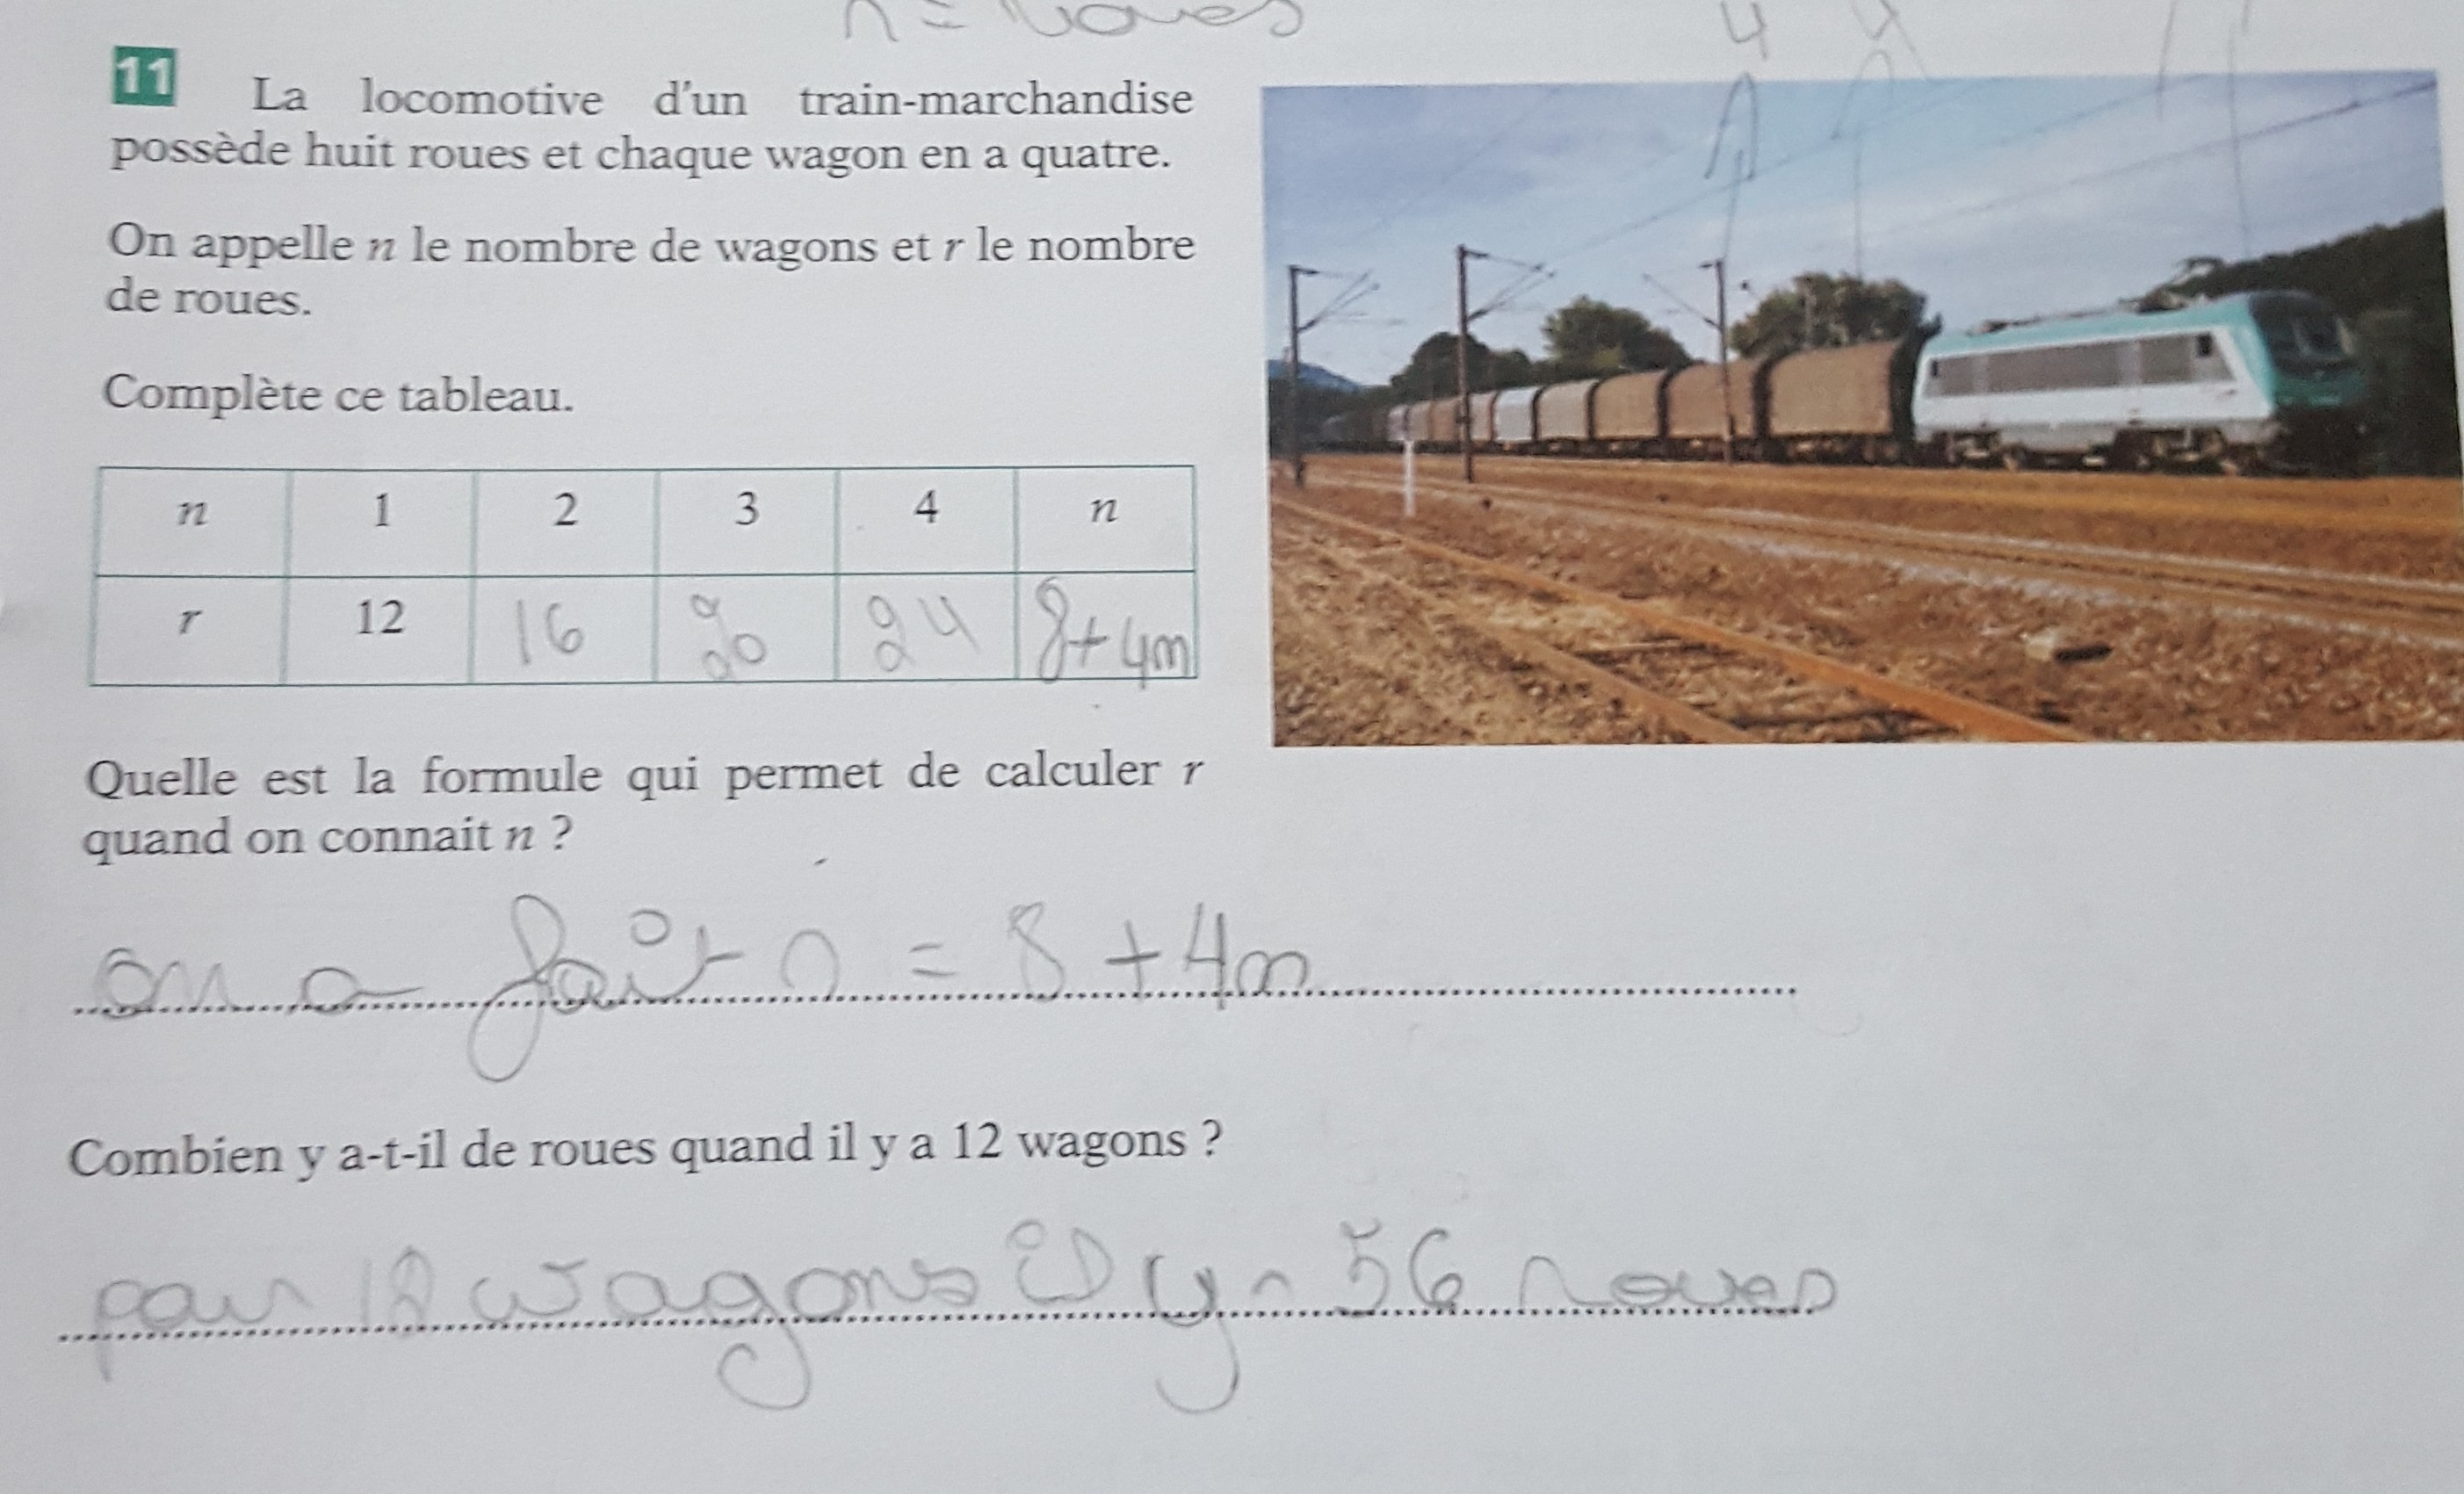 r = roues
4 4
11 La locomotive d'un train-marchandise
possède huit roues et chaque wagon en a quatre.
On appelle n le nombre de wagons et r le nombre
de roues.
Complète ce tableau.
n 1 2 3 4 n
r 12 16 20 24 8+4n
Quelle est la formule qui permet de calculer r
quand on connait n ?
on a fait r = 8 + 4n
Combien y a-t-il de roues quand il y a 12 wagons ?
pour 12 wagons il y a 56 roues